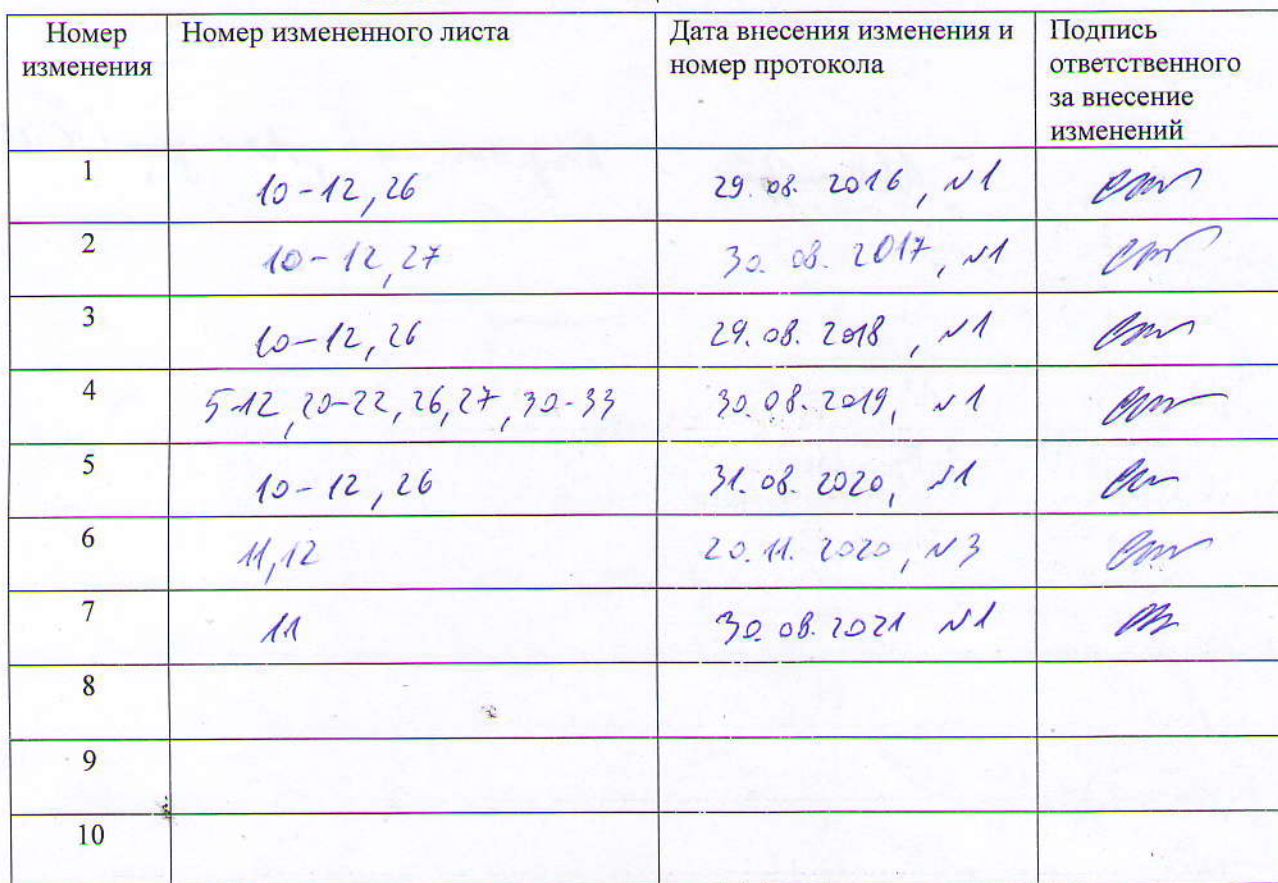 Номер изменения | Номер измененного листа | Дата внесения изменения и номер протокола | Подпись ответственного за внесение изменений
1 | 10-12, 26 | 29.08.2016, №1
2 | 10-12, 27 | 30.08.2017, №1
3 | 10-12, 26 | 29.08.2018, №1
4 | 5-12, 20-22, 26, 27, 30-33 | 30.08.2019, №1
5 | 10-12, 26 | 31.08.2020, №1
6 | 11, 12 | 20.11.2020, №3
7 | 11 | 30.08.2021 №1
8
9
10